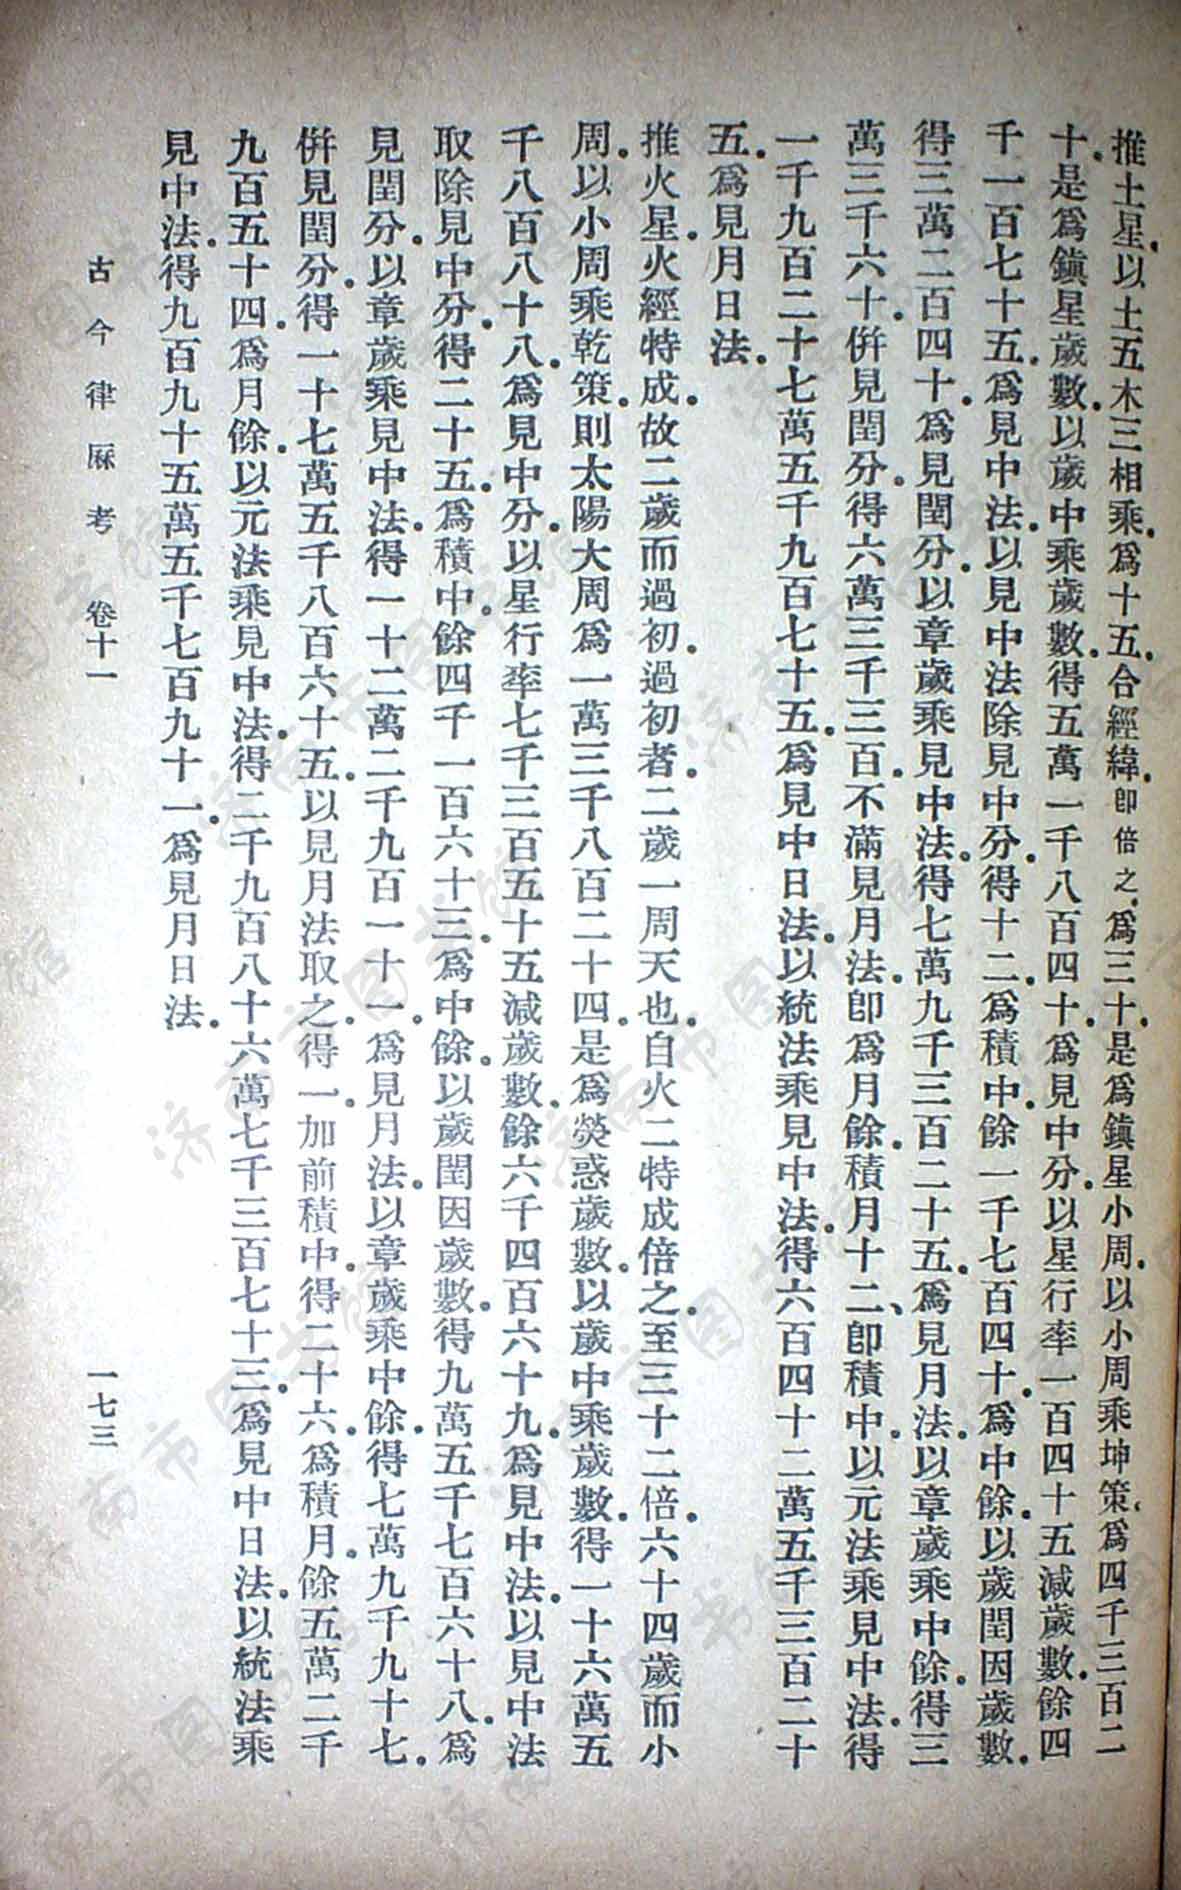 推土星。以土五木三相乘。爲十五。合經緯。卽倍之。爲三十。是爲鎭星小周。以小周乘坤策。爲四千三百二
十。是爲鎭星歲數。以歲中乘歲數。得五萬一千八百四十。爲見中分。以星行率一百四十五減歲數。餘四
千一百七十五。爲見中法。以見中法除見中分。得十二。爲積中。餘一千七百四十。爲中餘。以歲閏因歲數。
得三萬二百四十。爲見閏分。以章歲乘見中法。得七萬九千三百二十五。爲見月法。以章歲乘中餘。得三
萬三千六十。倂見閏分。得六萬三千三百。不滿見月法。卽爲月餘。積月十二、卽積中。以元法乘見中法。得
一千九百二十七萬五千九百七十五。爲見中日法。以統法乘見中法。得六百四十二萬五千三百二十
五。爲見月日法。
推火星。火經特成。故二歲而過初。過初者。二歲一周天也。自火二特成倍之。至三十二倍。六十四歲而小
周。以小周乘乾策。則太陽大周爲一萬三千八百二十四。是爲熒惑歲數。以歲中乘歲數。得一十六萬五
千八百八十八。爲見中分。以星行率七千三百五十五減歲數。餘六千四百六十九。爲見中法。以見中法
取除見中分。得二十五。爲積中。餘四千一百六十三。爲中餘。以歲閏因歲數。得九萬五千七百六十八。爲
見閏分。以章歲乘見中法。得一十二萬二千九百一十一。爲見月法。以章歲乘中餘。得七萬九千九十七。
倂見閏分。得一十七萬五千八百六十五。以見月法取之。得一。加前積中。得二十六。爲積月。餘五萬二千
九百五十四。爲月餘。以元法乘見中法。得二千九百八十六萬七千三百七十三。爲見中日法。以統法乘
見中法。得九百九十五萬五千七百九十一。爲見月日法。
古今律厤考　卷十一　一七三
济南市图书馆